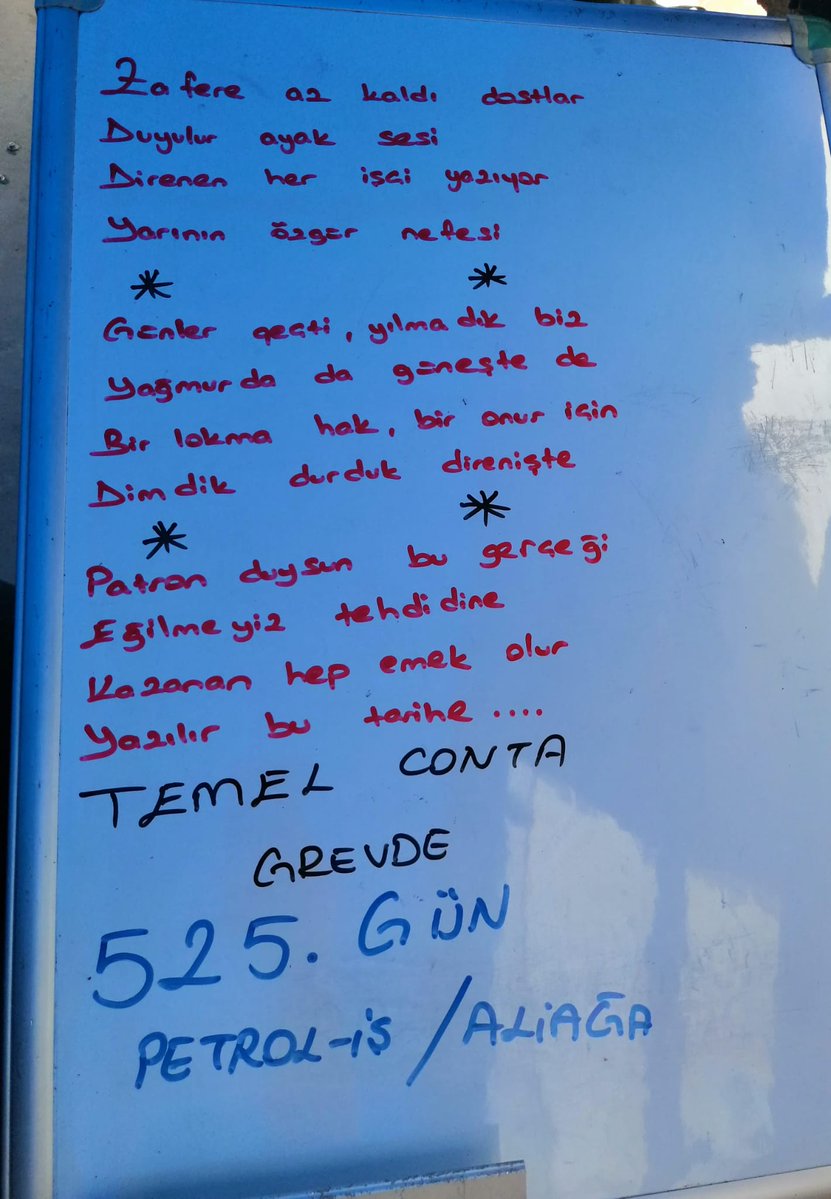 Zafere az kaldı dostlar
Duyulur ayak sesi
Direnen her işçi yazıyor
Yarının özgür nefesi
* *
Günler geçti, yılmadık biz
Yağmurda da güneşte de
Bir lokma hak, bir onur için
Dimdik durduk direnişte
* *
Patron duysun bu gerçeği
Eğilmeyiz tehdidine
Kazanan hep emek olur
Yazılır bu tarihe....
TEMEL CONTA
GREVDE
525. GÜN
PETROL-İŞ / ALİAĞA